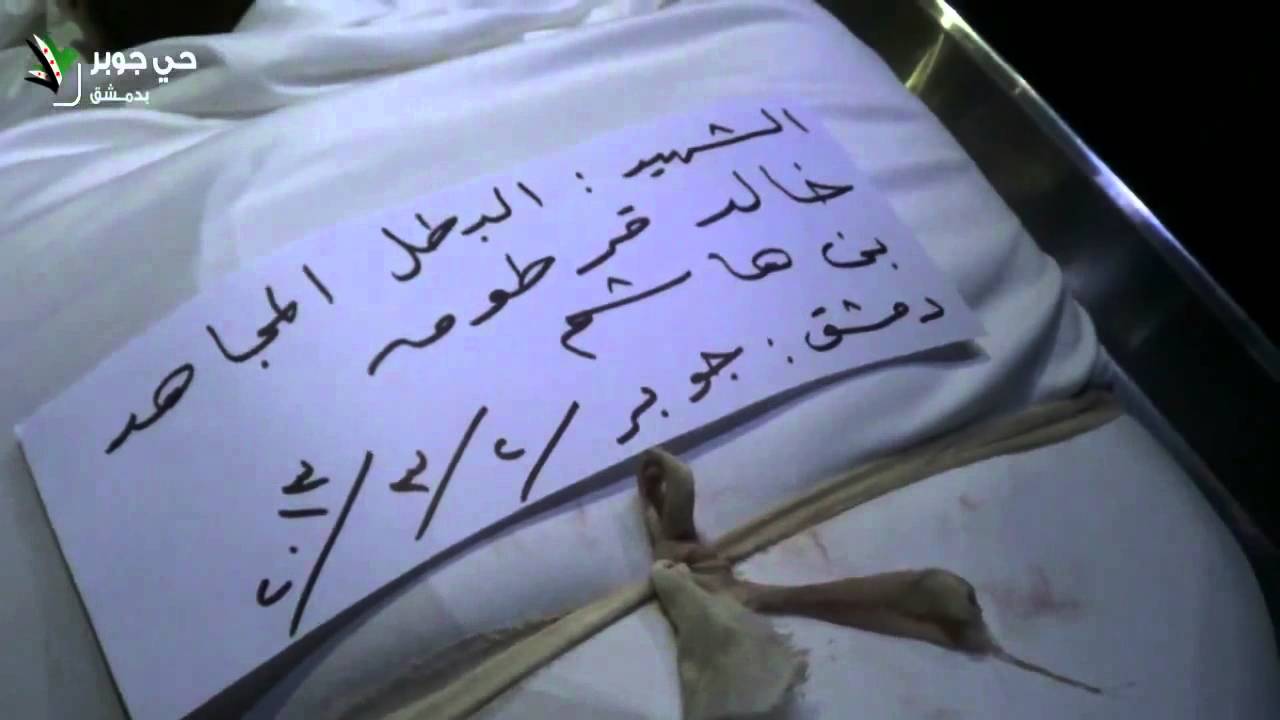 حي جوبر
بدمشق
الشهيد : البطل المجاهد
خالد قرطومه
بن هاشم
دمشق : جوبر